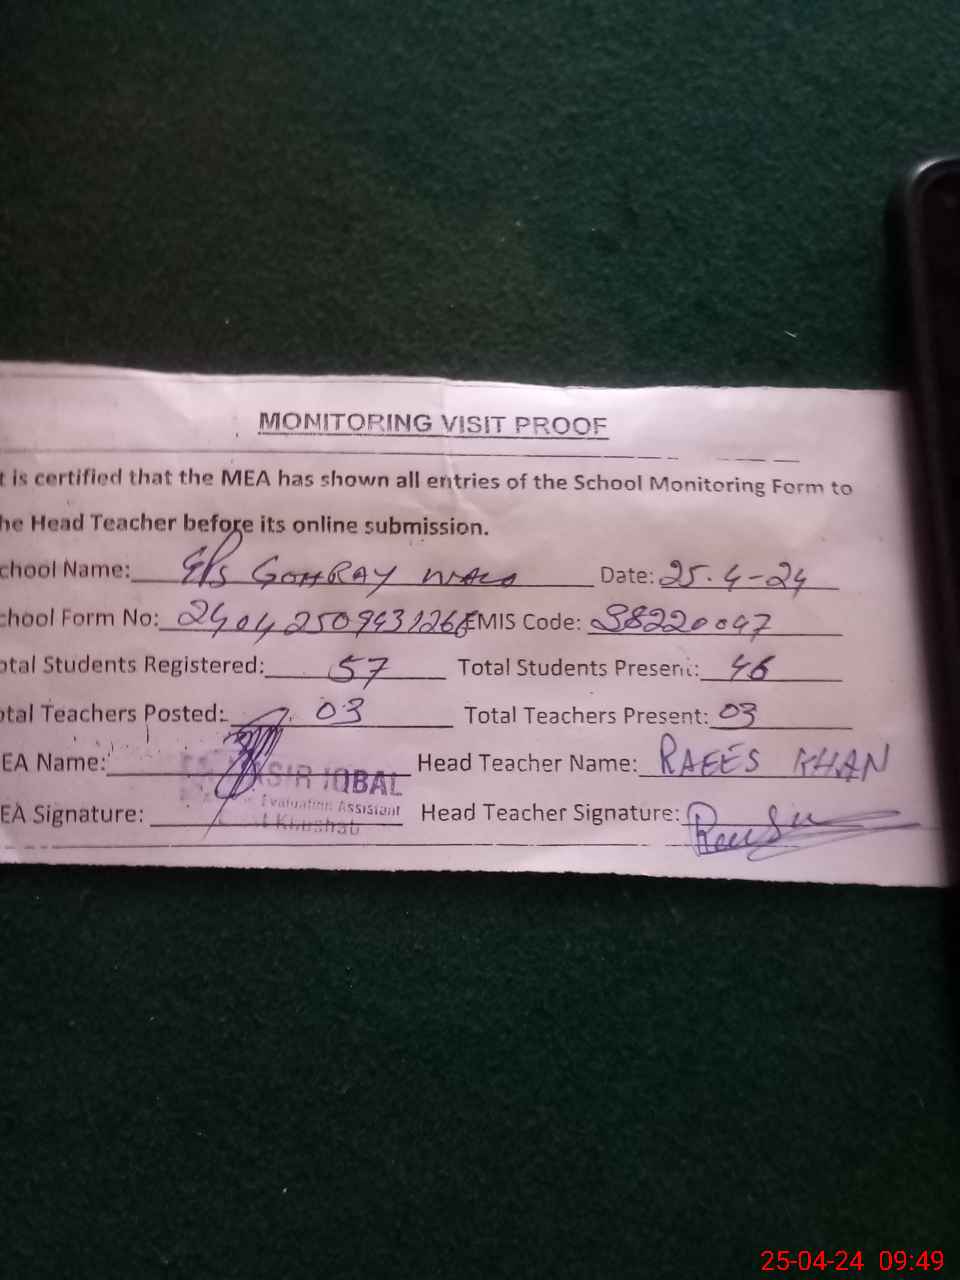 MONITORING VISIT PROOF
t is certified that the MEA has shown all entries of the School Monitoring Form to
he Head Teacher before its online submission.
chool Name: GPS GOHRAY WALA Date: 25.4-24
chool Form No: EMIS Code: 38220047
otal Students Registered: 57 Total Students Present: 46
otal Teachers Posted: 03 Total Teachers Present: 03
EA Name: Head Teacher Name: RAEES KHAN
ASIR IQBAL
Evaluation Assistant
Khushab
EA Signature: Head Teacher Signature:
25-04-24 09:49